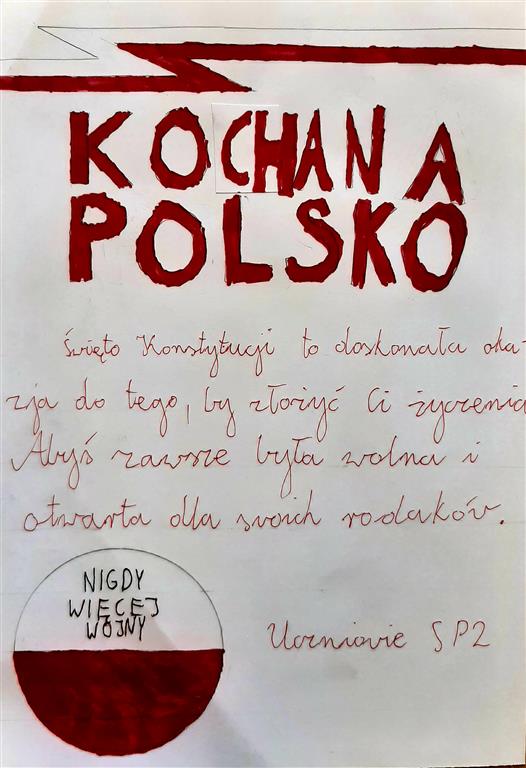 KOCHANA
POLSKO
Święto Konstytucji to doskonała oka-
zja do tego, by złożyć Ci życzenia
Abyś zawsze była wolna i
otwarta dla swoich rodaków.
NIGDY
WIĘCEJ
WOJNY
Uczniowie SP2